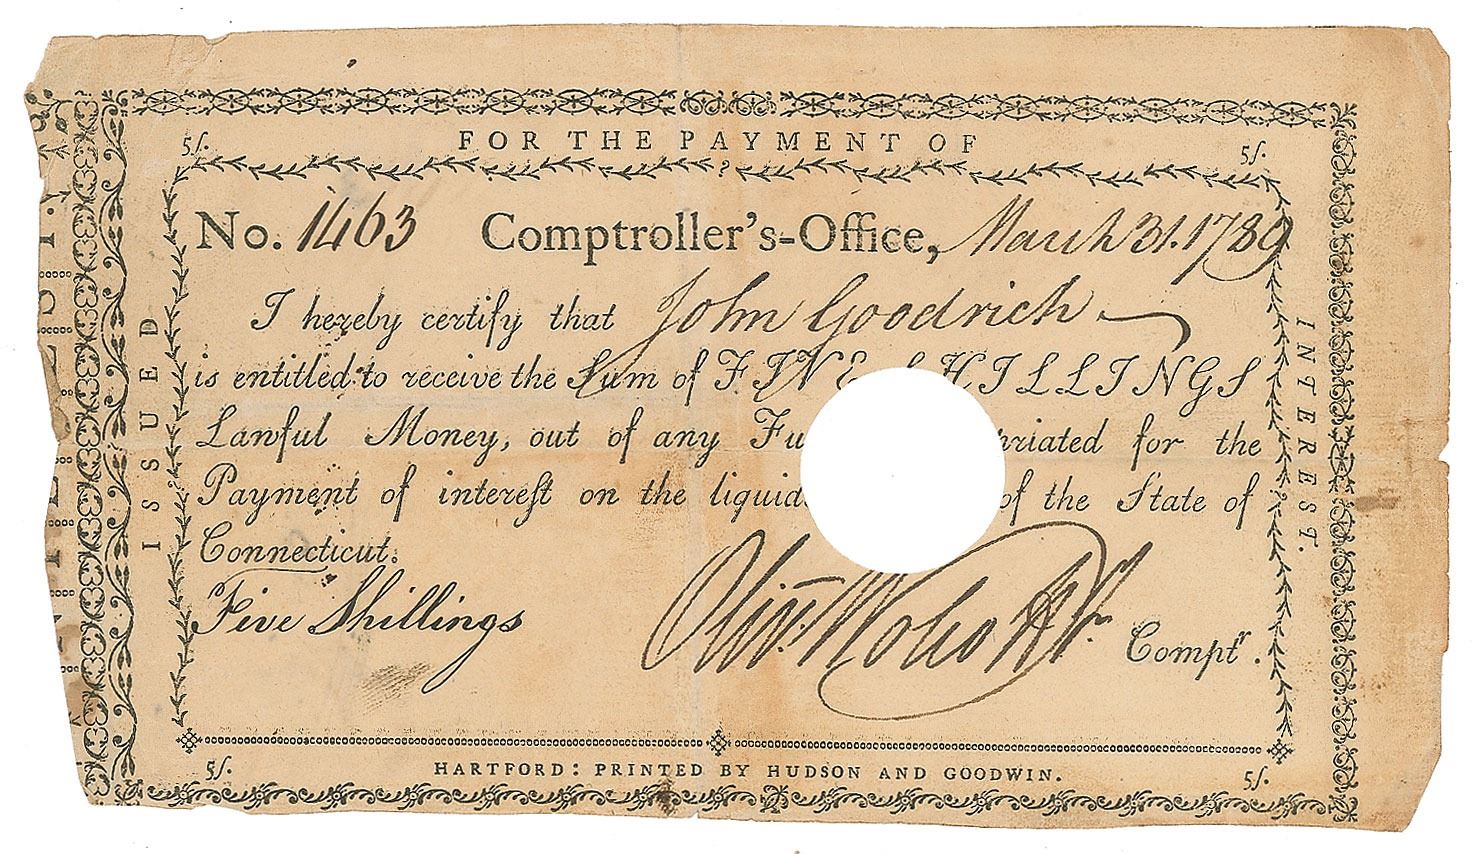 FOR THE PAYMENT OF
5/.
5/.
ISSUED
INTEREST.
No. 1463 Comptroller's-Office, March 31. 1789
I hereby certify that John Goodrich
is entitled to receive the Sum of FIVE SHILLINGS
Lawful Money, out of any Fu priated for the
Payment of interest on the liquid of the State of
Connecticut.
Five Shillings
Olivr. Wolcott Jr. Comptr.
5/.
HARTFORD: PRINTED BY HUDSON AND GOODWIN.
5/.